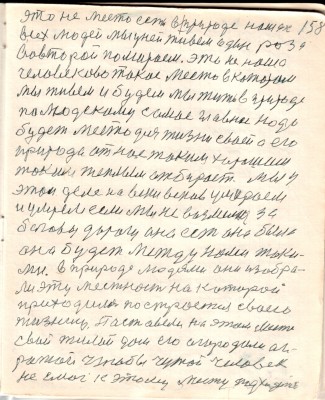 это не место есть в природе наших 158
всех людей мы у ней живем один раз а
во второй помираем, это не наше
человеково такое место в котором
мы живем и будем мы жить в природе
по людскому самое главное надо
будет место для жизни своей а его
природа от нас таким хорошим
таким теплым отбирает. Мы у
этом деле на веки веков умираем
и умрем если мы не возьмемся за
богову дорогу она есть она была
она будет между нами таки-
ми. В природе людями они избра-
ли эту местность на которой
приходилось построится своею
жизнию. Поставели на этом месте
свой жилой дом его огородили ог-
радой чтобы чужой человек
не смог к этому месту подходить